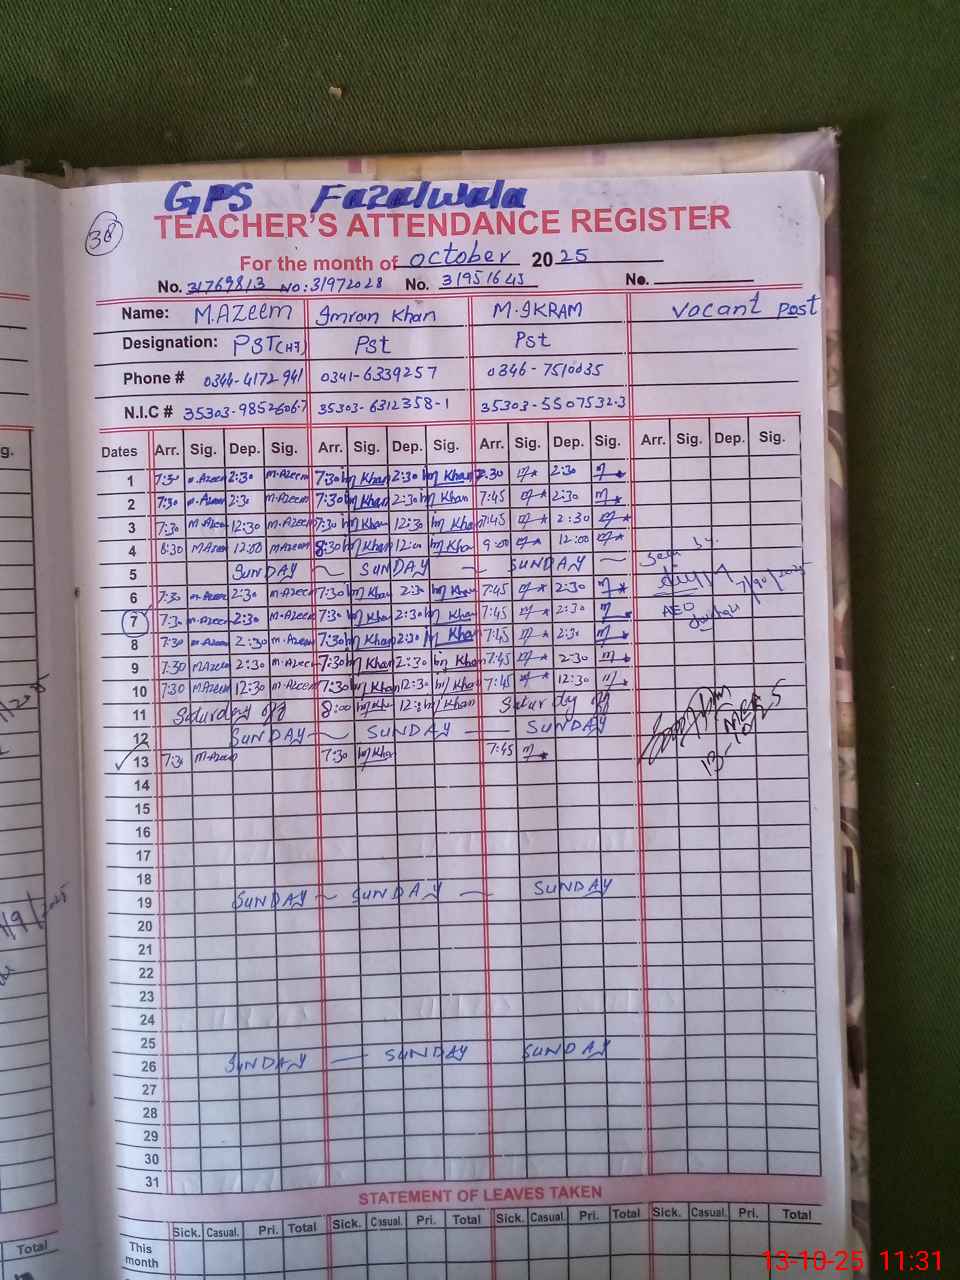 GPS Fazalwala
38
TEACHER'S ATTENDANCE REGISTER
For the month of October 2025
No. 31769813 No: 31972028 No. 31951645 No.
Name: M.AZeem Imran Khan M.IKRAM Vacant Post
Designation: PST(HT) Pst Pst
Phone # 0344-4172941 0341-6339257 0346-7510035
N.I.C # 35303-9852606-7 35303-6312358-1 35303-5507532-3
Dates Arr. Sig. Dep. Sig. Arr. Sig. Dep. Sig. Arr. Sig. Dep. Sig. Arr. Sig. Dep. Sig.
1 7:30 M.Azeem 2:30 M.Azeem 7:30 Khan 2:30 Khan 7:30 2:30
2 7:30 M.Azeem 2:30 M.Azeem 7:30 Khan 2:30 Khan 7:45 2:30
3 7:30 M.Azeem 12:30 M.Azeem 7:30 Khan 12:30 Khan 7:45 2:30
4 8:30 MAzeem 12:00 MAzeem 8:30 Khan 12:00 Kha 9:00 12:00
5 SUNDAY ~ SUNDAY ~ SUNDAY ~
6 7:30 M.Azeem 2:30 M.Azeem 7:30 Khan 2:30 Khan 7:45 2:30
7 7:30 M.Azeem 2:30 M.Azeem 7:30 Khan 2:30 Khan 7:45 2:30
8 7:30 M.Azeem 2:30 M.Azeem 7:30 Khan 2:30 Khan 7:45 2:30
9 7:30 MAzeem 2:30 M.Azeem 7:30 Khan 2:30 Khan 7:45 2:30
10 7:30 MAzeem 12:30 M.Azeem 7:30 Khan 12:30 Khan 7:45 12:30
11 Saturday off 8:00 Kha 12:30 Khan Saturday off
12 SUNDAY ~ SUNDAY — SUNDAY
13 7:30 M.Azeem 7:30 Kha 7:45
Seen by
7/10/2025
AEO
MEA
13-10
14
15
16
17
18
19 SUNDAY ~ SUNDAY — SUNDAY
20
21
22
23
24
25
26 SUNDAY — SUNDAY SUNDAY
27
28
29
30
31
STATEMENT OF LEAVES TAKEN
Sick. Casual. Pri. Total Sick. Casual. Pri. Total Sick. Casual. Pri. Total Sick. Casual. Pri. Total
This month
g.
Total
13-10-25 11:31